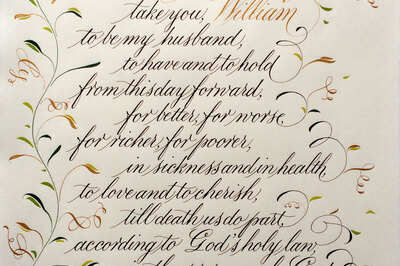 take you, William
to be my husband,
to have and to hold
from this day forward,
for better, for worse,
for richer, for poorer,
in sickness and in health,
to love and to cherish,
till death us do part,
according to God's holy law;